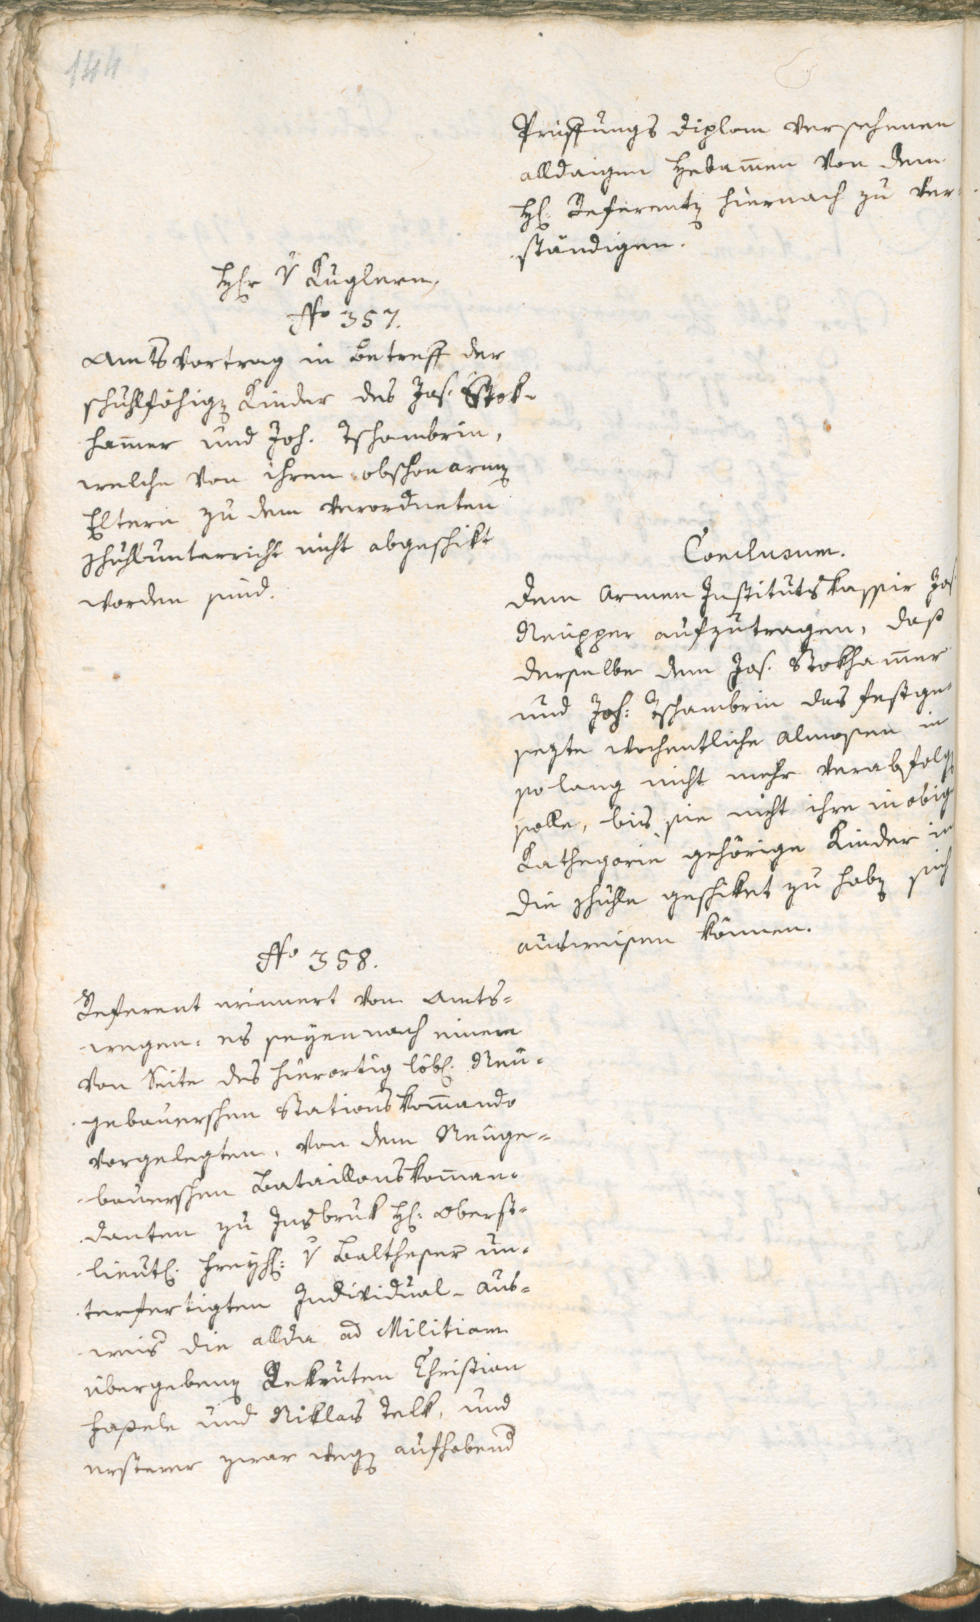 144
Prüffungs Diplom versehenen
alldaigen Hebam̄en von dem
H: Referenten hiernach zu ver-
ständigen.
Hr v Kuglern,
No 357.
Amtsvortrag in Betreff der
schuhlfähigen Kinder des Jos. Stok-
ham̄er und Joh. Tschambrin,
welche von ihren obschon armen
Eltern zu dem verordneten
Schuhlunterricht nicht abgeschikt
worden sind.
Conclusum.
Dem Armen Institutskassir Jos.
Neupper aufzutragen, daß
derselbe dem Jos. Stokham̄er
und Joh: Tschambrin das festge-
sezte wochentliche Almosen in
so lang nicht mehr verabfolgen
solle, bis sie nicht ihre in obige
Kathegorie gehörige Kinder in
die Schuhle geschiket zu haben sich
ausweisen können.
No 358.
Referent erinnert von Amts-
wegen: es seyen nach einem
von Seite des hierortig löbl: Neu-
gebauerschen Stationskom̄ando
vorgelegten, von dem Neuge-
bauerschen Bataillonskom̄an-
danten zu Insbruk H: Oberst-
lieut: Freyh: v Baltheser un-
terfertigten Individual-Aus-
weis die allda ad Militiam
übergebenen Rekruten Christian
Hasele und Niklas Telk, und
ersterer zwar wegen aufhabend